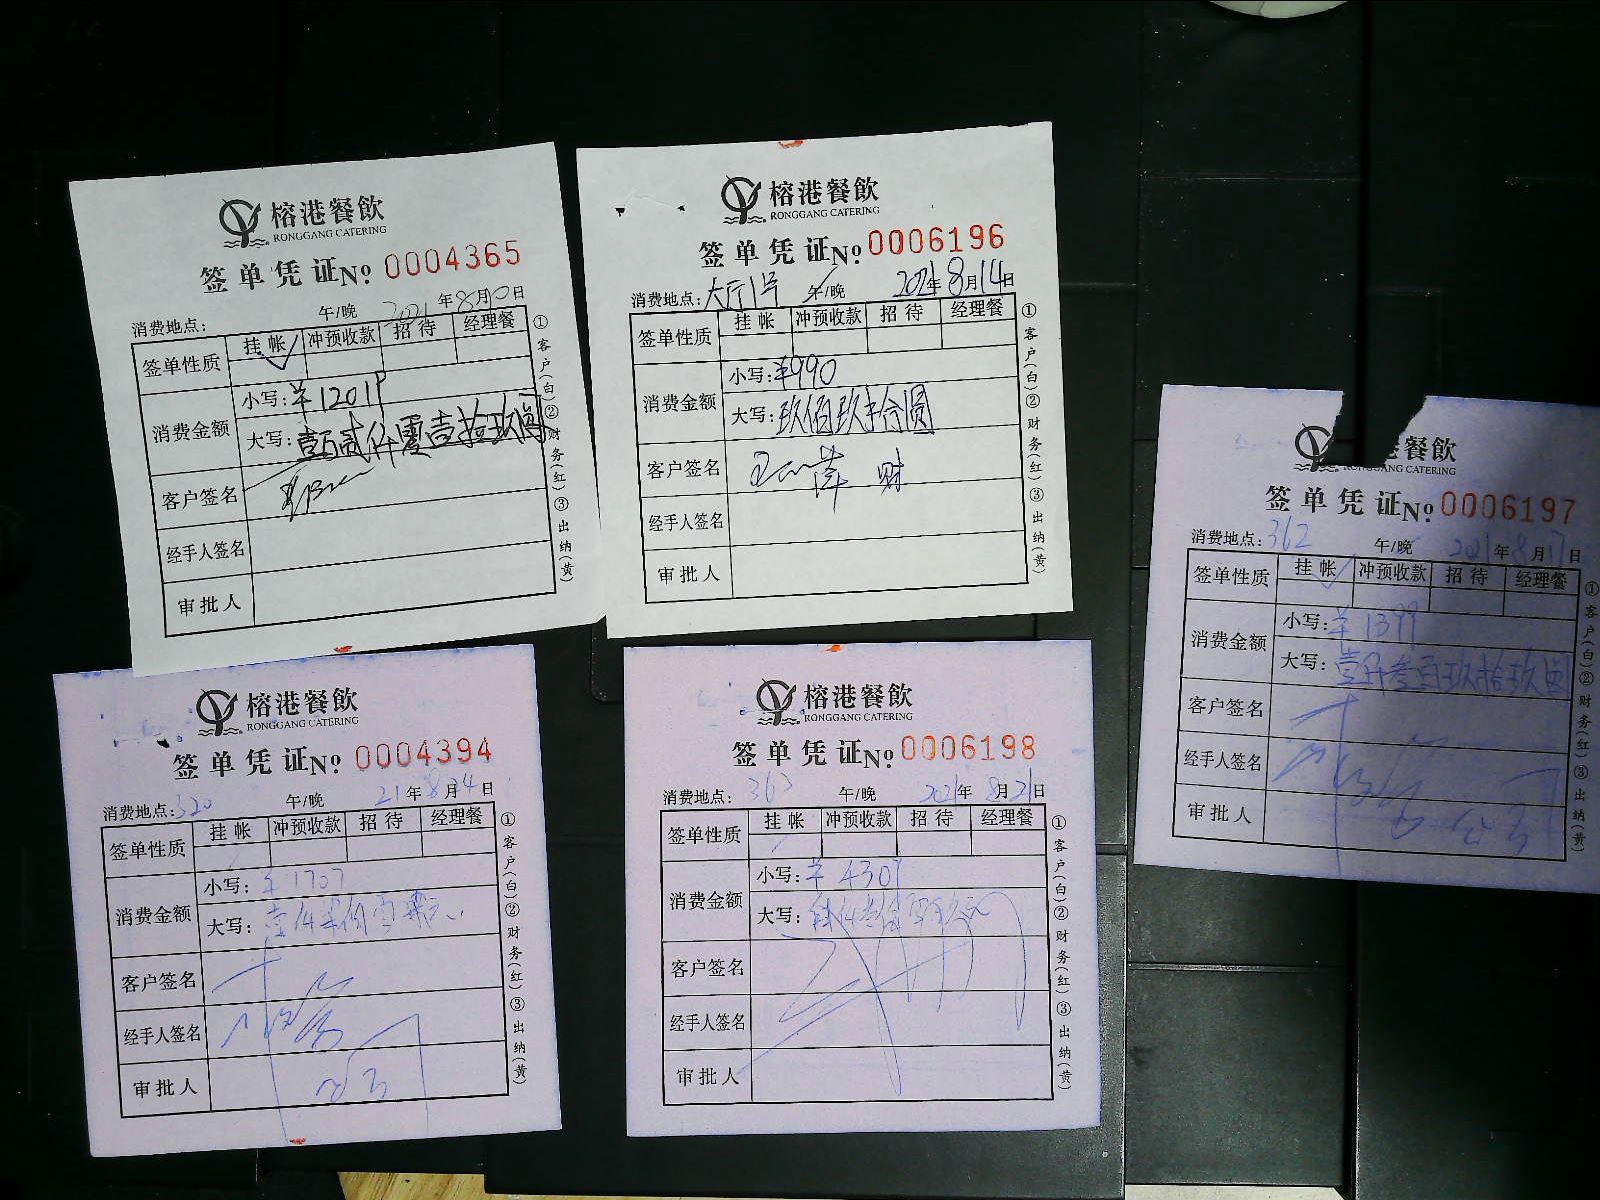 榕港餐飲
RONGGANG CATERING
签单凭证№ 0004365
消费地点: 午/晚 2021年8月10日
签单性质 挂帐 冲预收款 招待 经理餐
消费金额 小写:¥12019
大写:壹万贰仟零壹拾玖圆
客户签名
经手人签名
审批人
①客户(白)②财务(红)③出纳(黄)
榕港餐飲
RONGGANG CATERING
签单凭证№ 0006196
消费地点:大厅1号 午/晚 2021年8月14日
签单性质 挂帐 冲预收款 招待 经理餐
消费金额 小写:¥990
大写:玖佰玖拾圆
客户签名 财
经手人签名
审批人
①客户(白)②财务(红)③出纳(黄)
餐飲
CATERING
签单凭证№ 0006197
消费地点:362 午/晚 2021年8月17日
签单性质 挂帐 冲预收款 招待 经理餐
消费金额 小写:¥1399
大写:壹仟叁百玖拾玖圆
客户签名
经手人签名
审批人
①客户(白)②财务(红)③出纳(黄)
榕港餐飲
RONGGANG CATERING
签单凭证№ 0004394
消费地点:320 午/晚 21年8月4日
签单性质 挂帐 冲预收款 招待 经理餐
消费金额 小写:¥1707
大写:
客户签名
经手人签名
审批人
①客户(白)②财务(红)③出纳(黄)
榕港餐飲
RONGGANG CATERING
签单凭证№ 0006198
消费地点:363 午/晚 2021年8月21日
签单性质 挂帐 冲预收款 招待 经理餐
消费金额 小写:¥4309
大写:
客户签名
经手人签名
审批人
①客户(白)②财务(红)③出纳(黄)